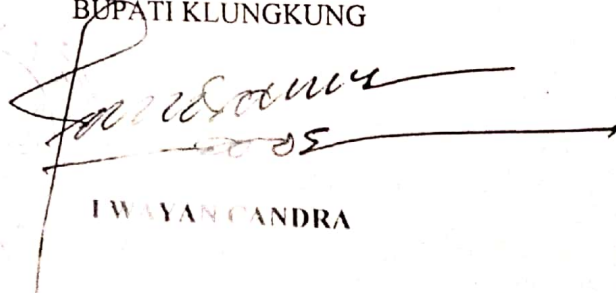 BUPATI KLUNGKUNG
I WAYAN CANDRA